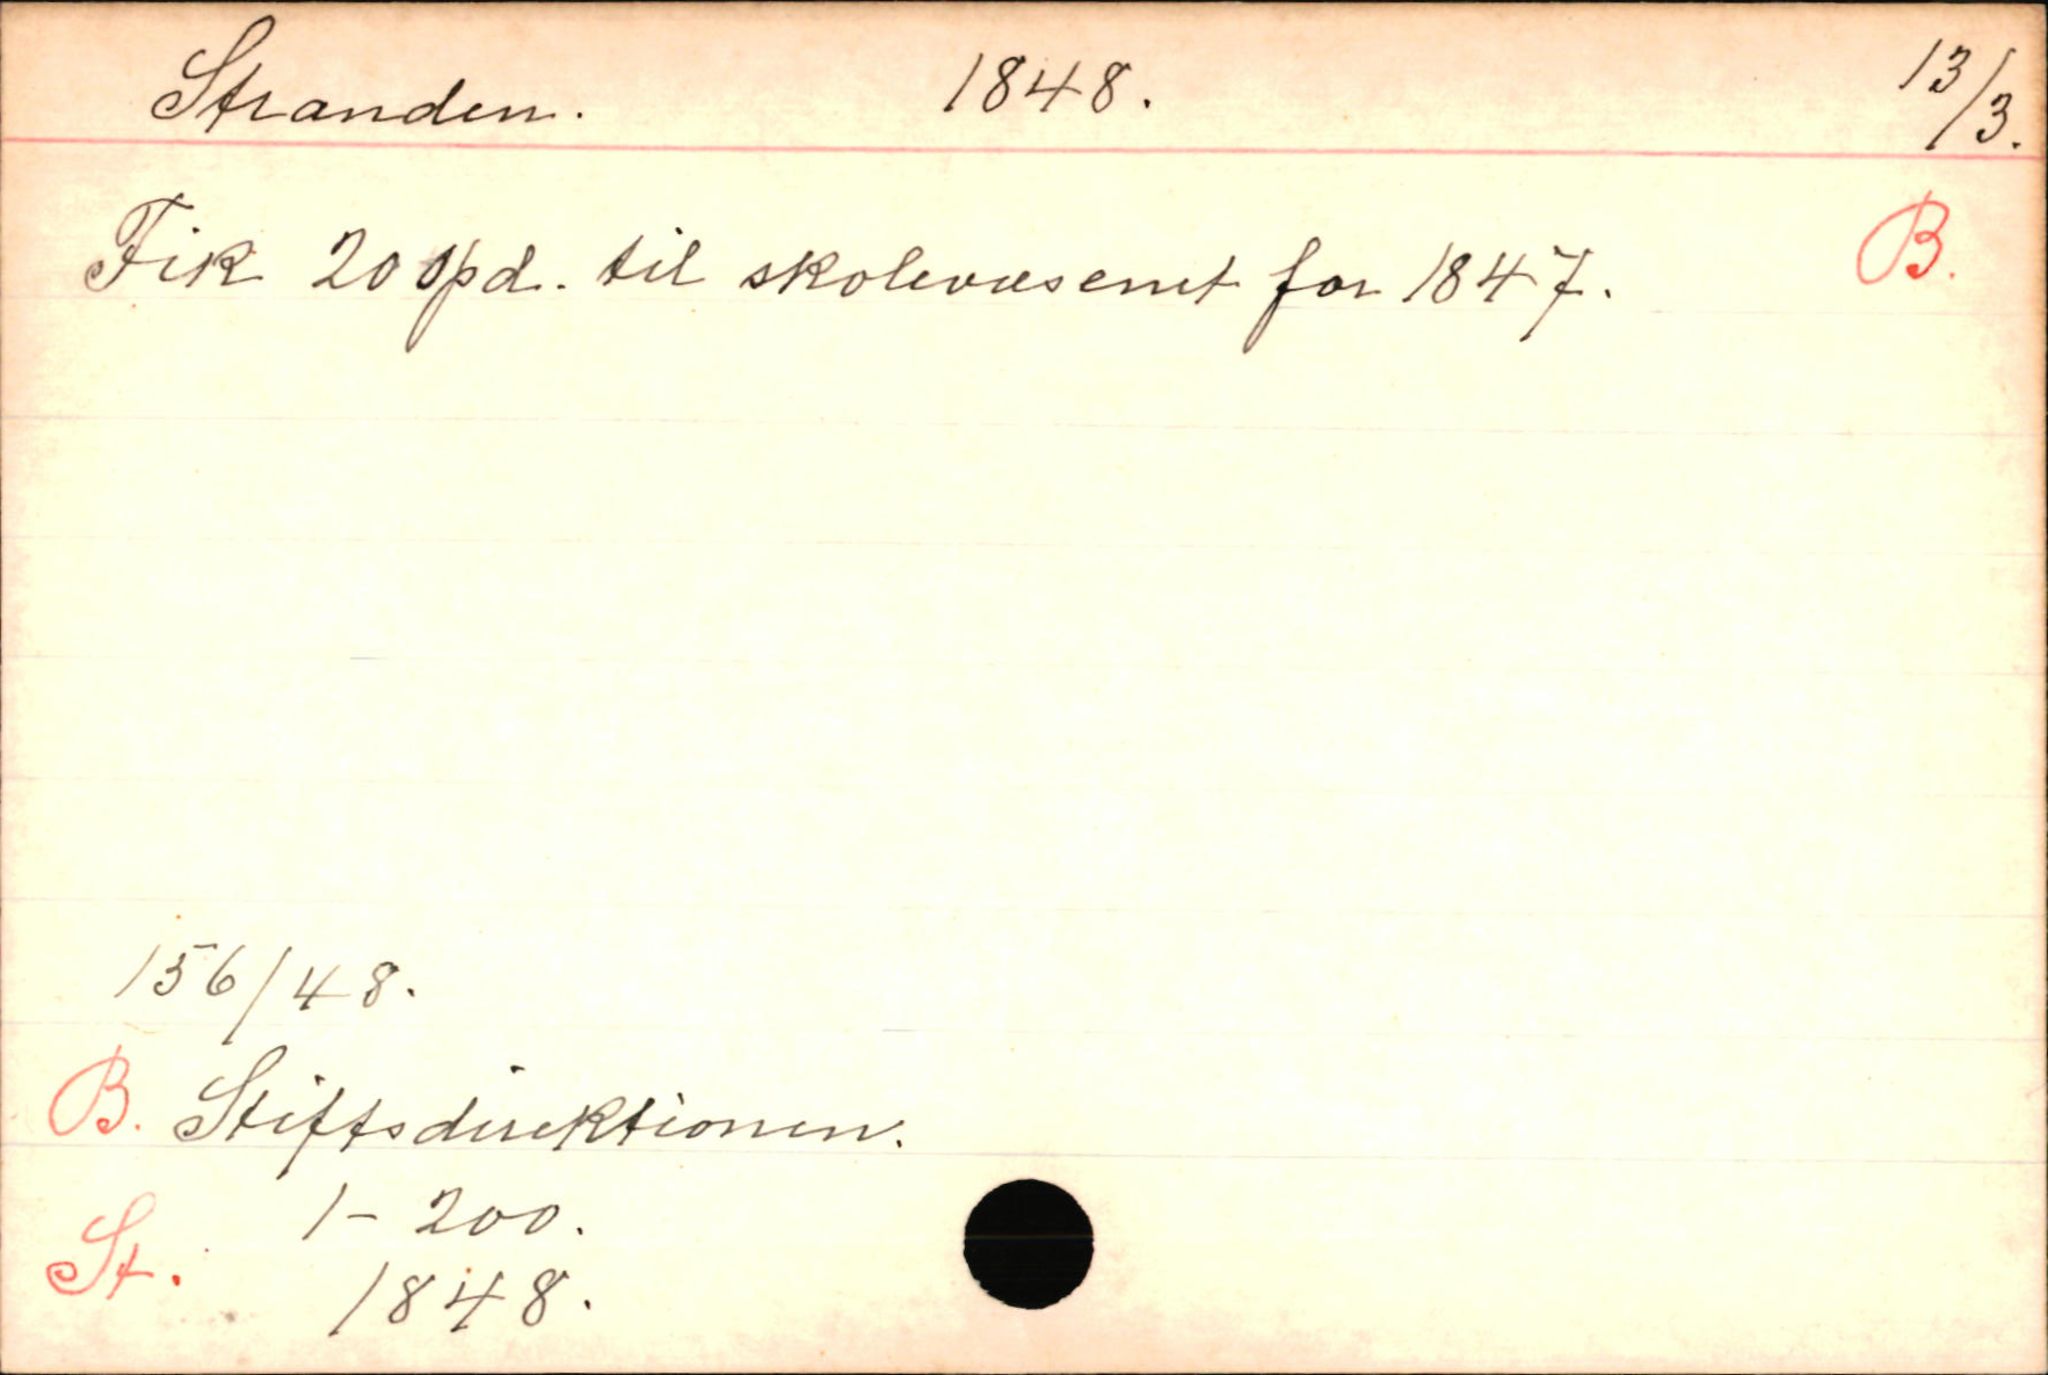 Stranden. 1848. 13/3.
Fik 20 spd. til skolevæsenet for 1847. B.
156/48.
B. Stiftsdirektionen.
1-200.
St.
1848.